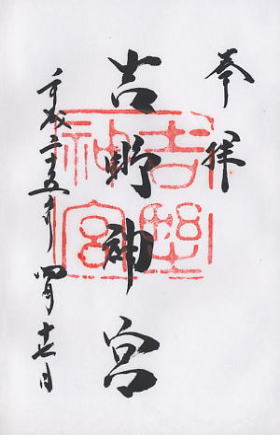 奉拝
吉野神宮
平成二十五年四月十七日
吉野神宮